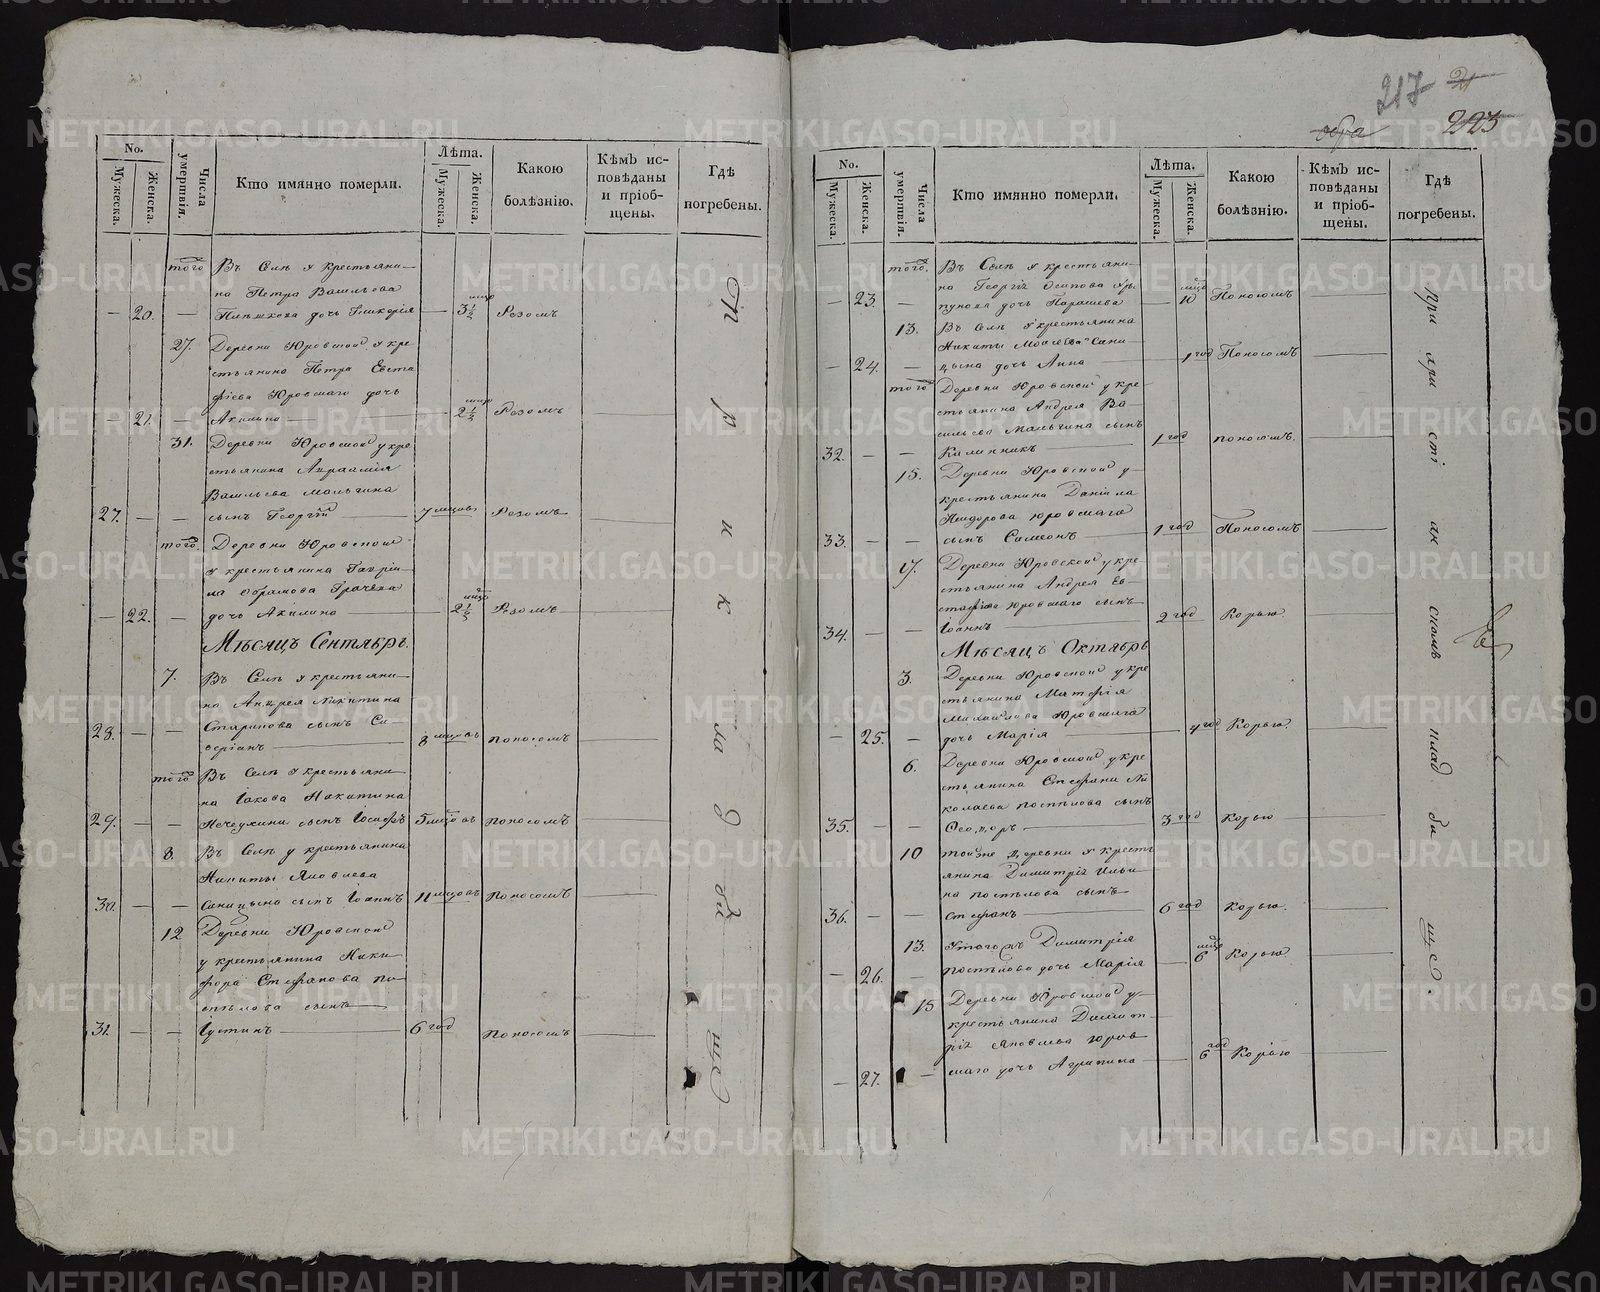 217
21
обра
223
No.
Мужеска.
Женска.
Числа умершвія.
Кто имянно померли.
Лѣта.
Мужеска.
Женска.
Какою болѣзнію.
Кѣмъ исповѣданы и пріобщены.
Гдѣ погребены.
того Въ Селѣ у крестьяни-
на Петра Васильева
20. дочь Гликерія 3½ мцо Резомъ
27. Деревни Юровской у кре
стьянина Петра Евста
фіева Юровскаго дочь
21. Акилина 2½ мцо Резомъ
31. Деревни Юровской у кре
стьянина Авраамія
Васильева Мальгина
27. сынъ Георгій 7 мцовъ Резомъ
того Деревни Юровской
у крестьянина Гаврiи-
ла Абрамова Грачева
22. дочь Акилина 2½ мцо Резомъ
Мѣсяцъ Сентябрь.
7. Въ Селѣ у крестьяни-
на Андрея Никитина
28. Старикова сынъ Се-
веріанъ 8 мцовъ поносомъ
того Въ Селѣ у крестьяни-
на Іакова Никитина
29. Нечеухина сынъ Іосифъ 5 мцовъ поносомъ
8. Въ Селѣ у крестьянина
Никиты Яковлева
30. Саницына сынъ Іоаннъ 11 мцовъ поносомъ
12 Деревни Юровской
у крестьянина Ники-
фора Стефанова по-
спѣлова сынъ
31. Іустинъ 6 год Поносомъ
При кладбище
No.
Мужеска.
Женска.
Числа умершвія.
Кто имянно померли.
Лѣта.
Мужеска.
Женска.
Какою болѣзнію.
Кѣмъ исповѣданы и пріобщены.
Гдѣ погребены.
того. Въ Селѣ у крестьяни-
на Георгія Осипова
23. дочь Парасева 10 мцо Поносомъ
13. Въ Селѣ у крестьянина
Никиты Моисеева Сани-
24. цына дочь Анна 1 год Поносомъ
того Деревни Юровской у кре-
стьянина Андрея Ва-
сильева Мальгина сынъ
32. Калинникъ 1 год поносомъ
15. Деревни Юровской у
крестьянина Даніила
Исидорова юровскаго
33. сынъ Симеонъ 1 год Поносомъ
17. Деревни Юровской у кре-
стьянина Андрея Ев-
стафіева юровскаго сынъ
34. Іоаннъ 2 год Корью
Мѣсяцъ Октябрь
3. Деревни Юровской у кре
стьянина Матфія
Михайлова Юровскаго
25. дочь Марія 4 год Корью
6. Деревни Юровской у кре
стьянина Стефана Ни
колаева поспѣлова сынъ
35. Ѳеодоръ 3 год Корью
10 тойже Деревни у кресть
янина Димитрія Ильи-
на поспѣлова сынъ
36. Стефанъ 6 год Корью.
13. Утогожъ Димитрія
26. поспѣлова дочь Марія 6 мцо Корью
15 Деревни Юровской у
крестьянина Димит-
рія Яковлева юров
27. скаго дочь Агрипина 6 год Корію
при христіанскомъ кладбище.